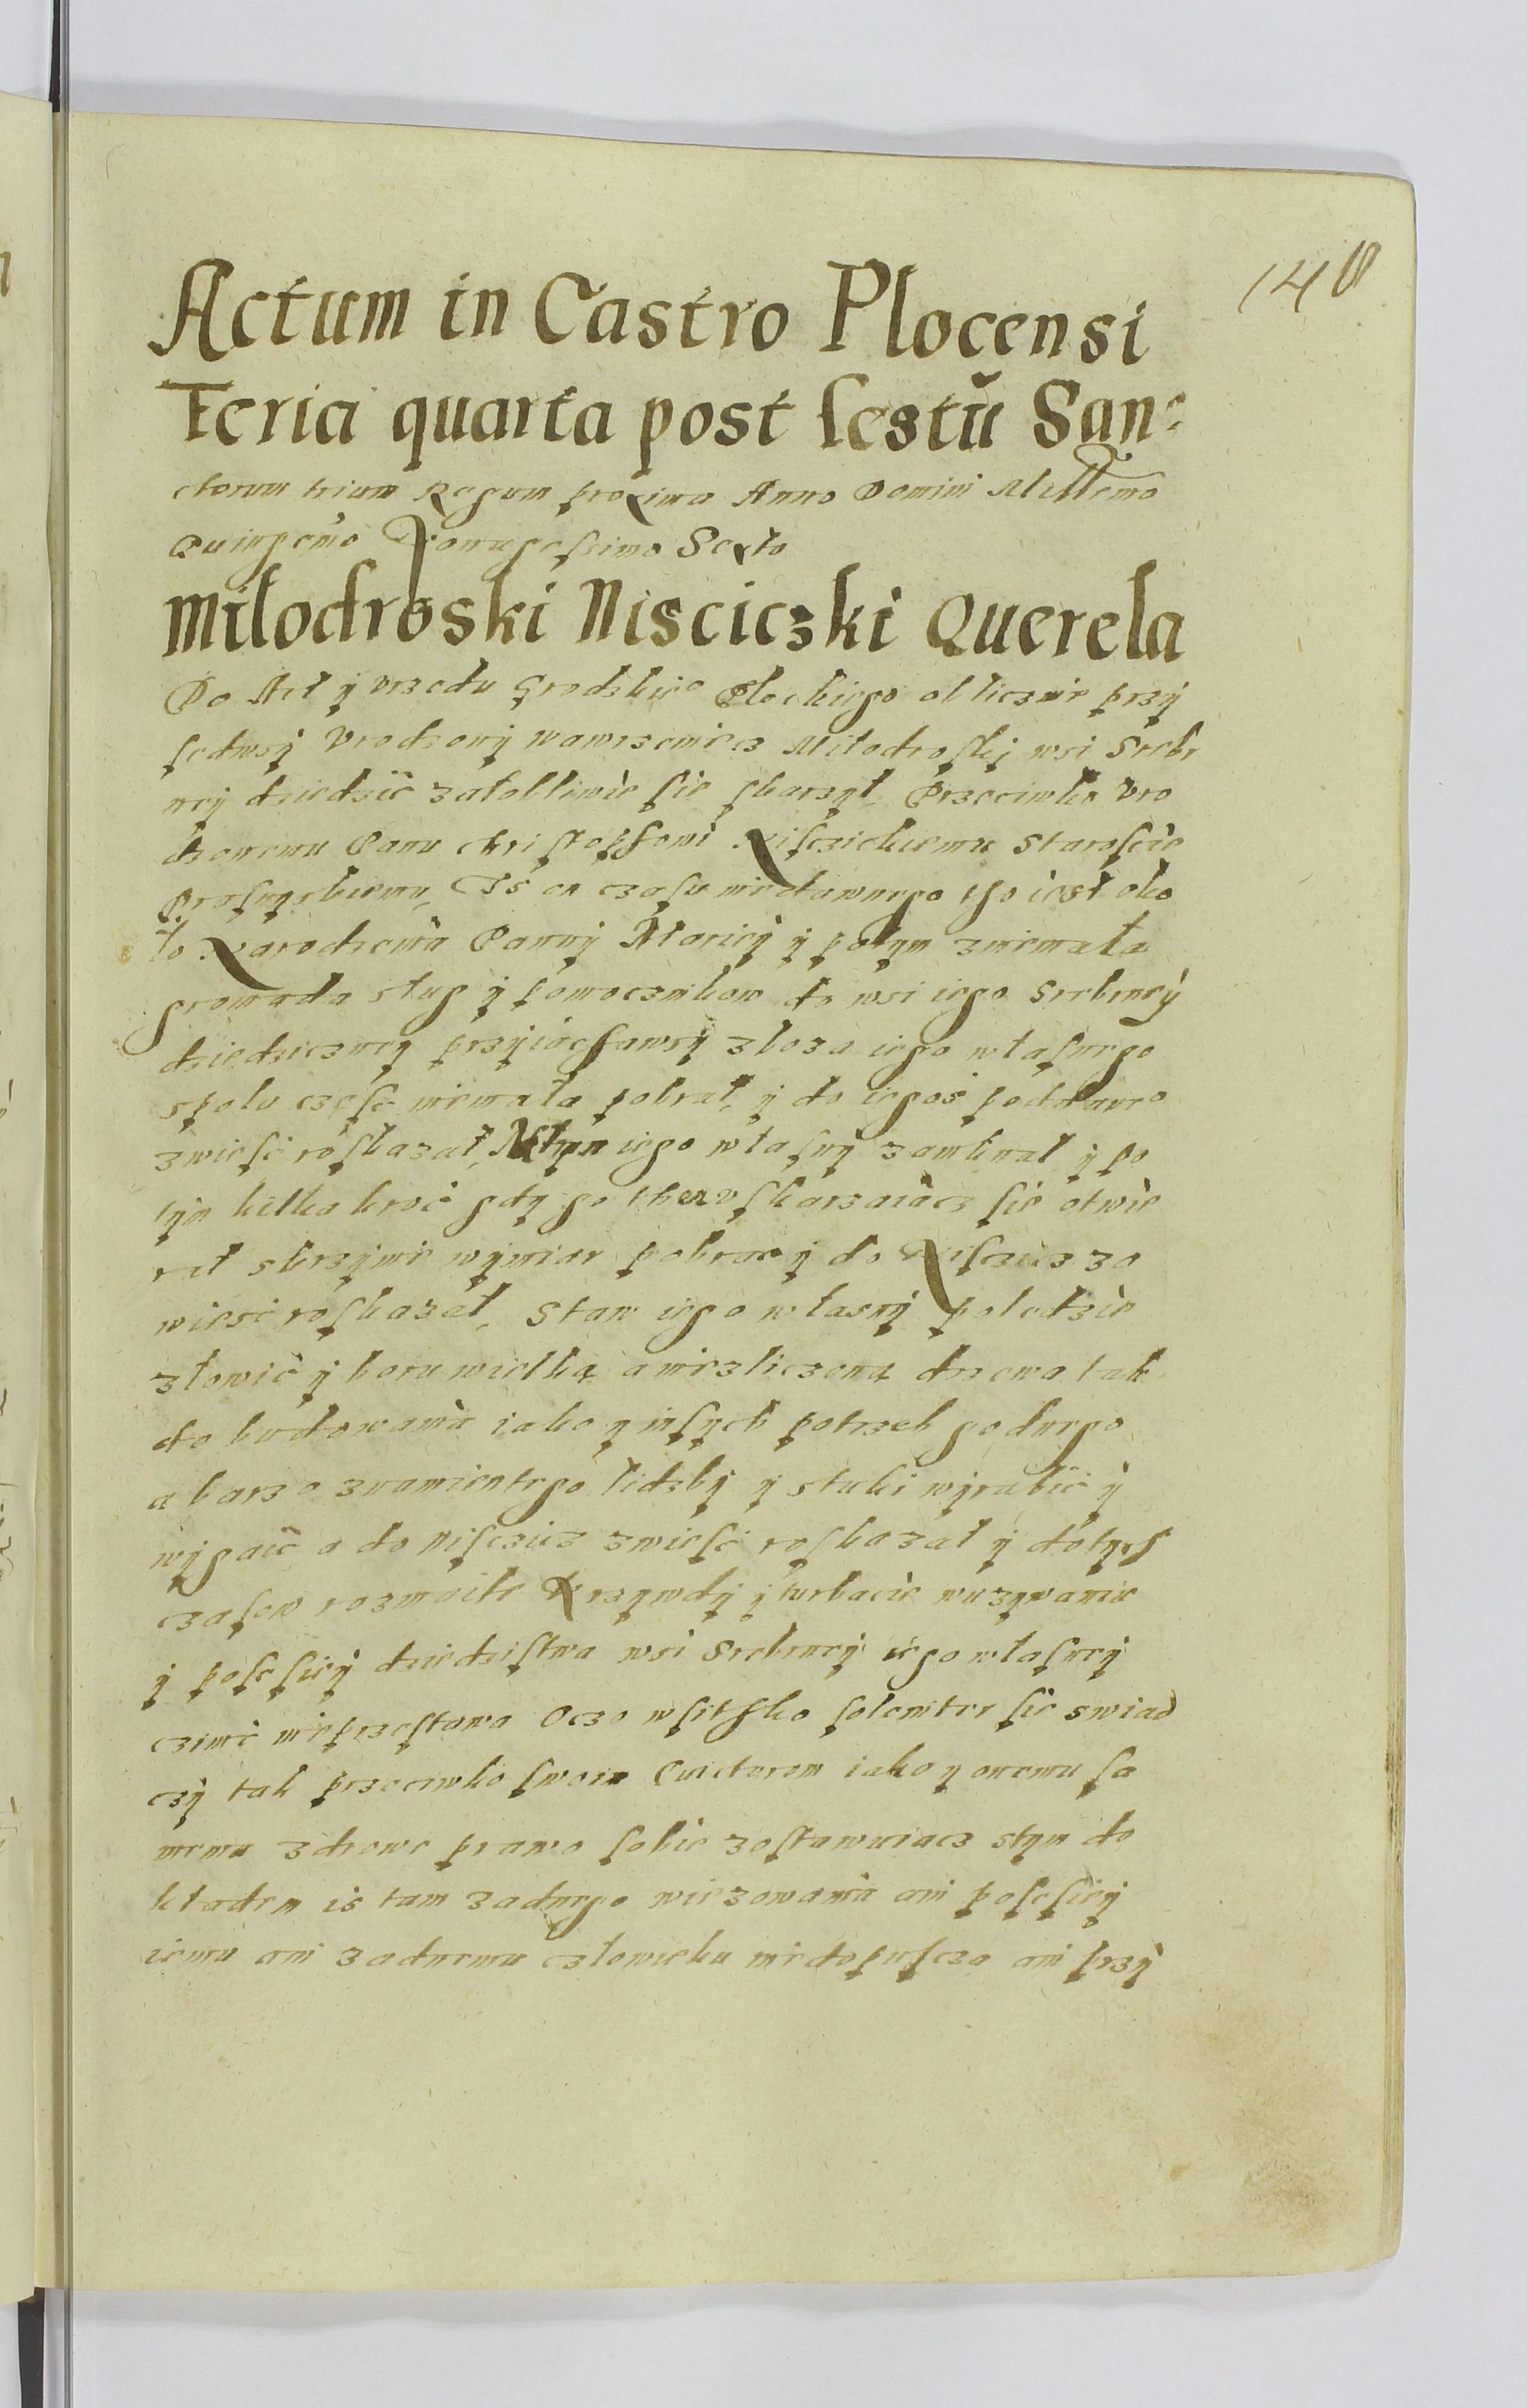 140
Actum in Castro Plocensi
Feria quarta post festū San-
ctorum trium Regum proxima Anno Domini Millemo
Quingemo Nonagesimo Sexto
Miłodroski Nisciczki Querela
Do Act ÿ vrzedu Grodzkie° Plockiego oblicznie przÿ
sedwsÿ Vrodzonÿ wawrzeniec Miłodroskj wsi Srebr
neÿ dziedzic załobliwie sie skarzÿł, Przeciwko Vro
dzonemu Panu Christophowi Nisczickiemu Staroscie
Prasnÿskiemu, Is on czasu niedawnego tho iest oko
ło Narodzenia Pannÿ Marieÿ ÿ potÿm zniemała
gromada sług ÿ pomocznikow do wsi iego Srebrneÿ
dziedziczneÿ przÿiachawsÿ zboza iego własnego
spolu czesc niemała pobrał, ÿ do iegoś poddane°
zwiesc roskazał, Młyn iego własnÿ zamknał ÿ po
tÿm kilka kroc gdÿ go then vskarzaiacz sie otwie
rał skrzÿnie wÿmiar pobrac ÿ do Nisczicz za
wiesc roskazał, Staw iego własnÿ poludzie
złowic ÿ boru wielką a niezliczoną drzewa tak
do budowania iako ÿ insÿch potrzeb godnego
a barzo znamienitego lidzbÿ ÿ stuki wÿrabic ÿ
wÿgaic a do Nisczicz zwiesc roskazał ÿ dotÿch
czasow rozmaite Krzÿwdÿ ÿ turbacie wuzÿwanie
ÿ posesieÿ dziedzistwa wsi Srebrneÿ iego własneÿ
czinic nieprzestawa Oczo wsithko solemniter sie swiad
czÿ tak przeciwko swoim Euictorom iako ÿ onemu sa
memu zdrowe prawo sobie zostawuiacz stÿm do
kładem is tam zadnego wiezowania ani posesieÿ
iemu ani zadnemu człowieku niedopuscza ani przÿ